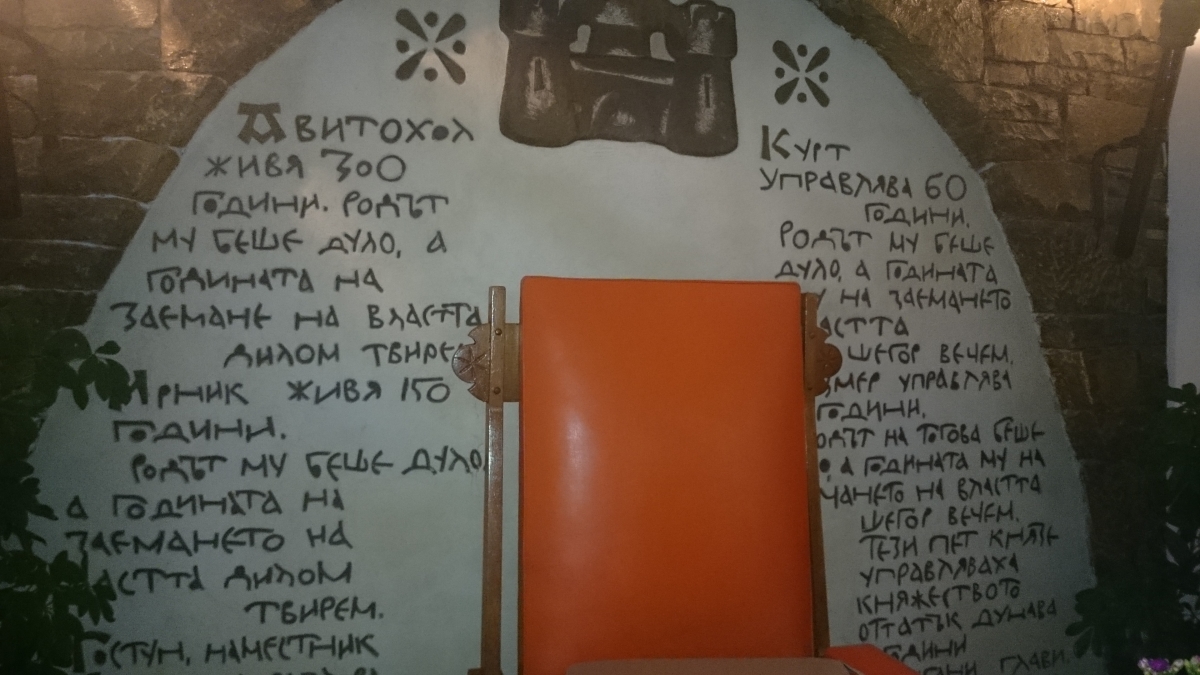 Авитохол
живя 300
години. Родът
му беше Дуло, а
годината на
заемане на властта
дилом твирем
Ирник живя 150
години.
Родът му беше Дуло
а годината на
заемането на
дилом
твирем.
Гостун, наместник
Курт
управлява 60
години.
Родът му беше
Дуло, а годината
на заемането
шегор вечем.
управлява
години.
на тогова беше
а годината му на
на властта
шегор вечем.
Тези пет князе
управляваха
княжеството
оттатък Дунава
години
глави.